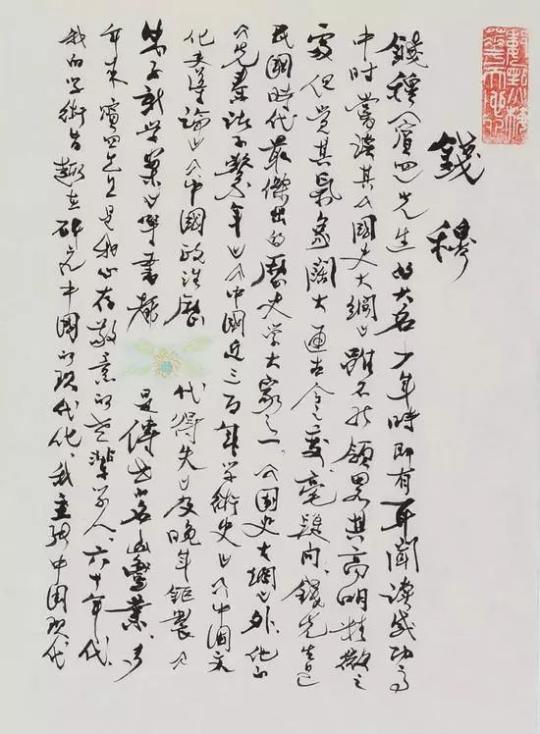 錢穆
錢穆(賓四)先生的大名,少年時即有耳聞,讀成功高
中時,嘗讀其《國史大綱》,雖不能領略其高明精微之
處,但覺其氣象闊大,通古今之變,毫疑問,錢先生是
民國時代最傑出的歷史學大家之一,《國史大綱》外,他的
《先秦諸子繫年》《中國近三百年學術史》《中國文
化史導論》《中國政治歷代得失》及晚年鉅製《
朱子新學案》等書都是傳世之名山盛業,多
年來賓四先生是我心存敬意的老輩學人,六十年代,
我的學術旨趣在研究中國的現代化,我主張中國現代